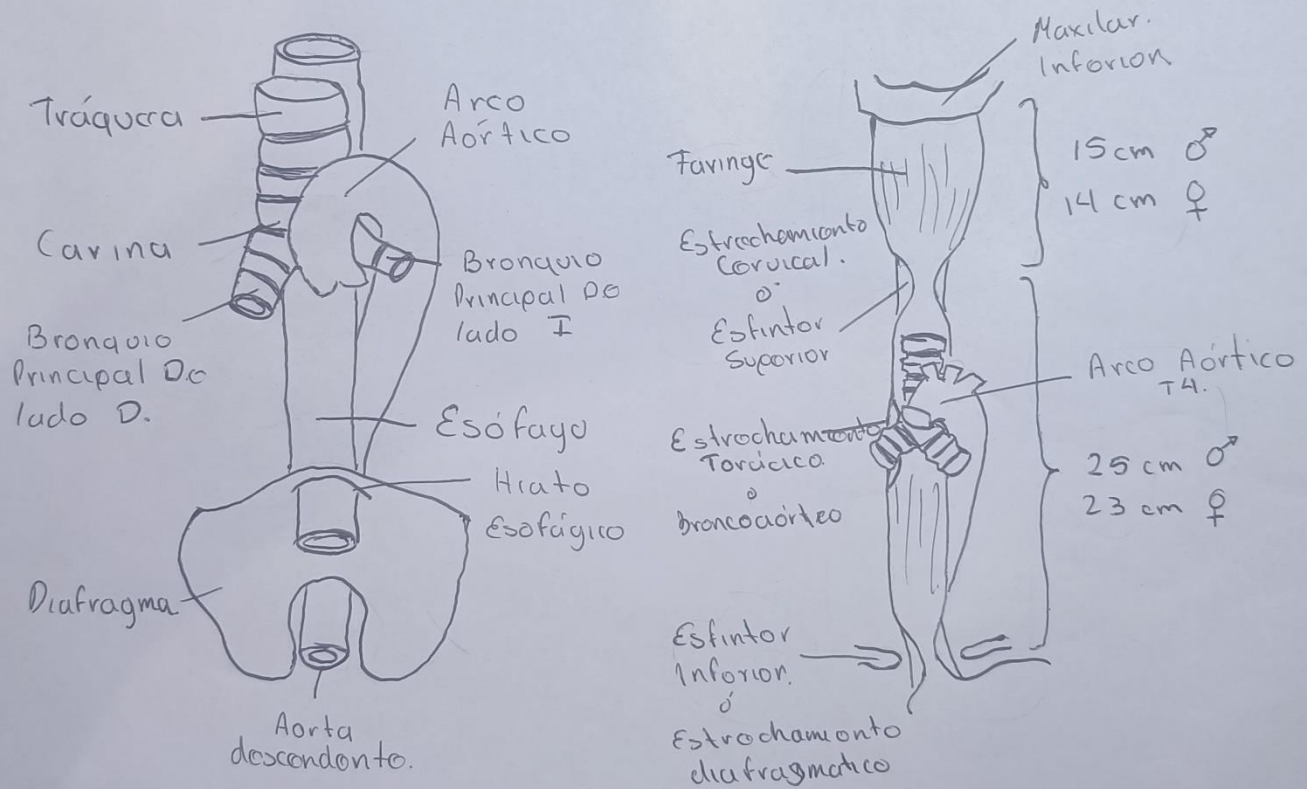 Tráquea
Arco
Aórtico
Carina
Bronquio
Principal De
lado I
Bronquio
Principal De
lado D.
Esófago
Hiato
Esofágico
Diafragma
Aorta
descendente.
Maxilar.
Inferior
Faringe
15 cm ♂
14 cm ♀
Estrechamiento
Cervical.
o
Esfinter
Superior
Arco Aórtico
T4.
Estrechamiento
Torácico.
o
Broncoaórteo
25 cm ♂
23 cm ♀
Esfinter
Inferior.
ó
Estrechamiento
diafragmatico